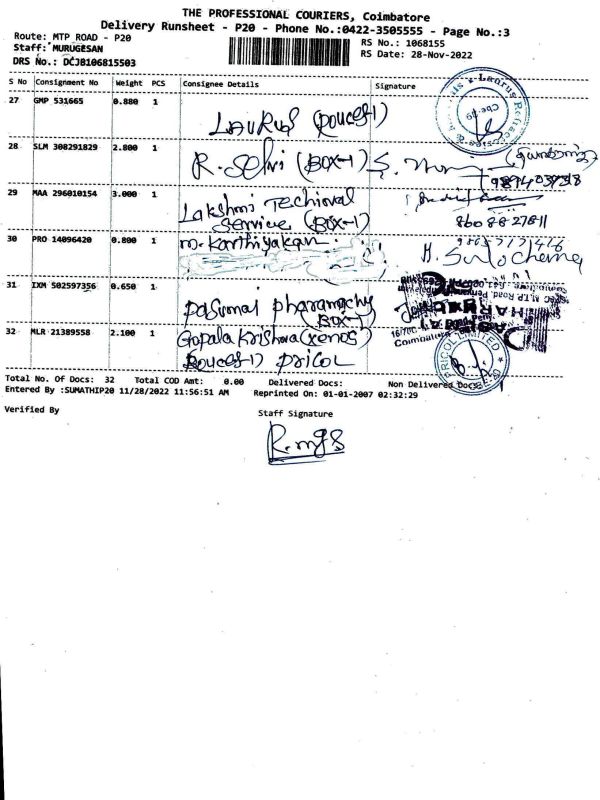 THE PROFESSIONAL COURIERS, Coimbatore
Delivery Runsheet - P20 - Phone No.:0422-3505555 - Page No.:3
Route: MTP ROAD - P20
RS No.: 1068155
Staff: MURUGESAN
RS Date: 28-Nov-2022
DRS No.: DCJB106815503
S No Consignment No Weight PCS Consignee Details Signature
27 GMP 531665 0.880 1
Laurus (pouces-1)
28 SLM 308291829 2.800 1
R. Selvi (Box-1)
29 MAA 296010154 3.000 1
Lakshmi Techional
Service (Box-1)
8608827811
30 PRO 14096420 0.800 1
m. Karthiyakan
31 IXM 502597356 0.650 1
Pasumai pharamachy
(Box-1)
32 MLR 21389558 2.100 1
Gopala Krishna (xenos)
(pouces-1) PRICOL
PRICOL LIMITED
Total No. Of Docs: 32 Total COD Amt: 0.00 Delivered Docs: Non Delivered Docs:
Entered By :SUMATHIP20 11/28/2022 11:56:51 AM Reprinted On: 01-01-2007 02:32:29
Verified By
Staff Signature